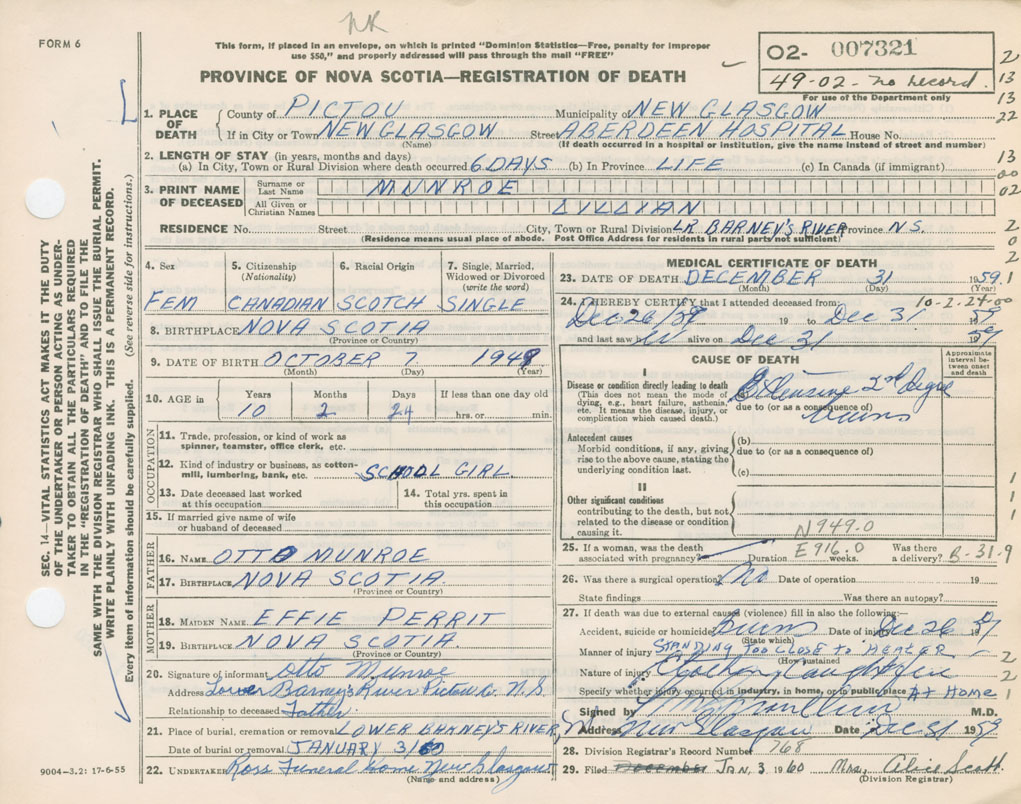 NR
FORM 6
This form, if placed in an envelope, on which is printed "Dominion Statistics—Free, penalty for improper
use $50," and properly addressed will pass through the mail "FREE"
02- 007321
49-02- no record.
For use of the Department only
PROVINCE OF NOVA SCOTIA—REGISTRATION OF DEATH
2
13
13
22
13
00
02
2
0
2
1
SEC. 14—VITAL STATISTICS ACT MAKES IT THE DUTY
OF THE UNDERTAKER OR PERSON ACTING AS UNDER-
TAKER TO OBTAIN ALL THE PARTICULARS REQUIRED
IN THE "REGISTRATION OF DEATH" AND TO FILE THE
SAME WITH THE DIVISION REGISTRAR WHO SHALL ISSUE THE BURIAL PERMIT.
WRITE PLAINLY WITH UNFADING INK. THIS IS A PERMANENT RECORD.
Every item of information should be carefully supplied. (See reverse side for instructions.)
1. PLACE OF DEATH
County of PICTOU Municipality of NEW GLASGOW
If in City or Town NEW GLASGOW Street ABERDEEN HOSPITAL House No.
(Name) (If death occurred in a hospital or institution, give the name instead of street and number)
2. LENGTH OF STAY (in years, months and days)
(a) In City, Town or Rural Division where death occurred 6 DAYS (b) In Province LIFE (c) In Canada (if immigrant)
3. PRINT NAME OF DECEASED
Surname or Last Name MUNROE
All Given or Christian Names LILLIAN
RESIDENCE No. Street City, Town or Rural Division LR. BARNEY'S RIVER Province N.S.
(Residence means usual place of abode. Post Office Address for residents in rural parts not sufficient)
4. Sex
FEM
5. Citizenship (Nationality)
CANADIAN
6. Racial Origin
SCOTCH
7. Single, Married, Widowed or Divorced (write the word)
SINGLE
8. BIRTHPLACE NOVA SCOTIA
(Province or Country)
9. DATE OF BIRTH OCTOBER 7 1949
(Month) (Day) (Year)
10. AGE in
Years Months Days If less than one day old
10 2 24 hrs. or min.
OCCUPATION
11. Trade, profession, or kind of work as
spinner, teamster, office clerk, etc.
12. Kind of industry or business, as cotton-
mill, lumbering, bank, etc. SCHOOL GIRL
13. Date deceased last worked
at this occupation
14. Total yrs. spent in
this occupation
15. If married give name of wife
or husband of deceased
FATHER
16. NAME OTTO MUNROE
17. BIRTHPLACE NOVA SCOTIA
(Province or Country)
MOTHER
18. MAIDEN NAME EFFIE PERRIT
19. BIRTHPLACE NOVA SCOTIA
(Province or Country)
20. Signature of informant Otto Munroe
Address Lower Barney's River Pictou Co. N.S.
Relationship to deceased Father
21. Place of burial, cremation or removal LOWER BARNEY'S RIVER,
Date of burial or removal JANUARY 3/60
22. UNDERTAKER Ross Funeral Home New Glasgow
(Name and address)
9004—3.2: 17-6-55
MEDICAL CERTIFICATE OF DEATH
23. DATE OF DEATH DECEMBER 31 1959
(Month) (Day)
24. I HEREBY CERTIFY that I attended deceased from: 10-2-24-00
Dec 26/59 19 to Dec 31 1959
and last saw alive on Dec 31 1959
CAUSE OF DEATH
Approximate interval between onset and death
I
Disease or condition directly leading to death
(This does not mean the mode of
dying, e.g., heart failure, asthenia,
etc. It means the disease, injury, or
complication which caused death.)
Extensive 2nd Degree
due to (or as a consequence of)
burns
Antecedent causes
Morbid conditions, if any, giving
rise to the above cause, stating the
underlying condition last.
(b)
due to (or as a consequence of)
(c)
II
Other significant conditions
contributing to the death, but not
related to the disease or condition
causing it.
N949.0
1
1
1
25. If a woman, was the death
associated with pregnancy? Duration E916.0 weeks. Was there a delivery? B-31-9
26. Was there a surgical operation? No Date of operation 19
State findings Was there an autopsy?
27. If death was due to external causes (violence) fill in also the following:—
Accident, suicide or homicide? Burns Date of injury Dec 26 1959
(State which)
Manner of injury STANDING TOO CLOSE TO HEATER
(How sustained)
Nature of injury Clothing caught fire
Specify whether injury occurred in industry, in home, or in public place At Home
2
2
1
Signed by M.D.
Address New Glasgow Date Dec 31 1959
28. Division Registrar's Record Number 768
29. Filed December JAN. 3 1960 Mrs. Alice Scott
(Division Registrar)